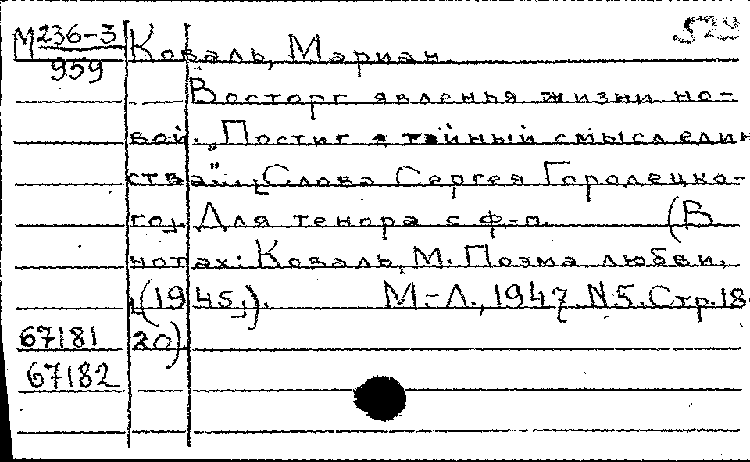 М 236-3 Коваль, Мариан. 529
959
Восторг явленья жизни но-
вой. „Постиг я тайный смысл един
ства"... [Слова Сергея Городецко-
го]. Для тенора с ф-п. (В
нотах: Коваль, М. Поэма любви.
[(1945)]. М.-Л., 1947. N5. Стр. 18-
67181 20)
67182